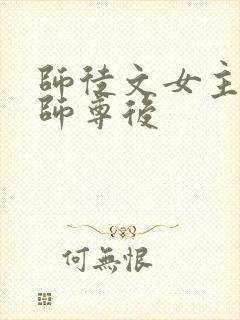 師徒文女主
師尊後
何無恨